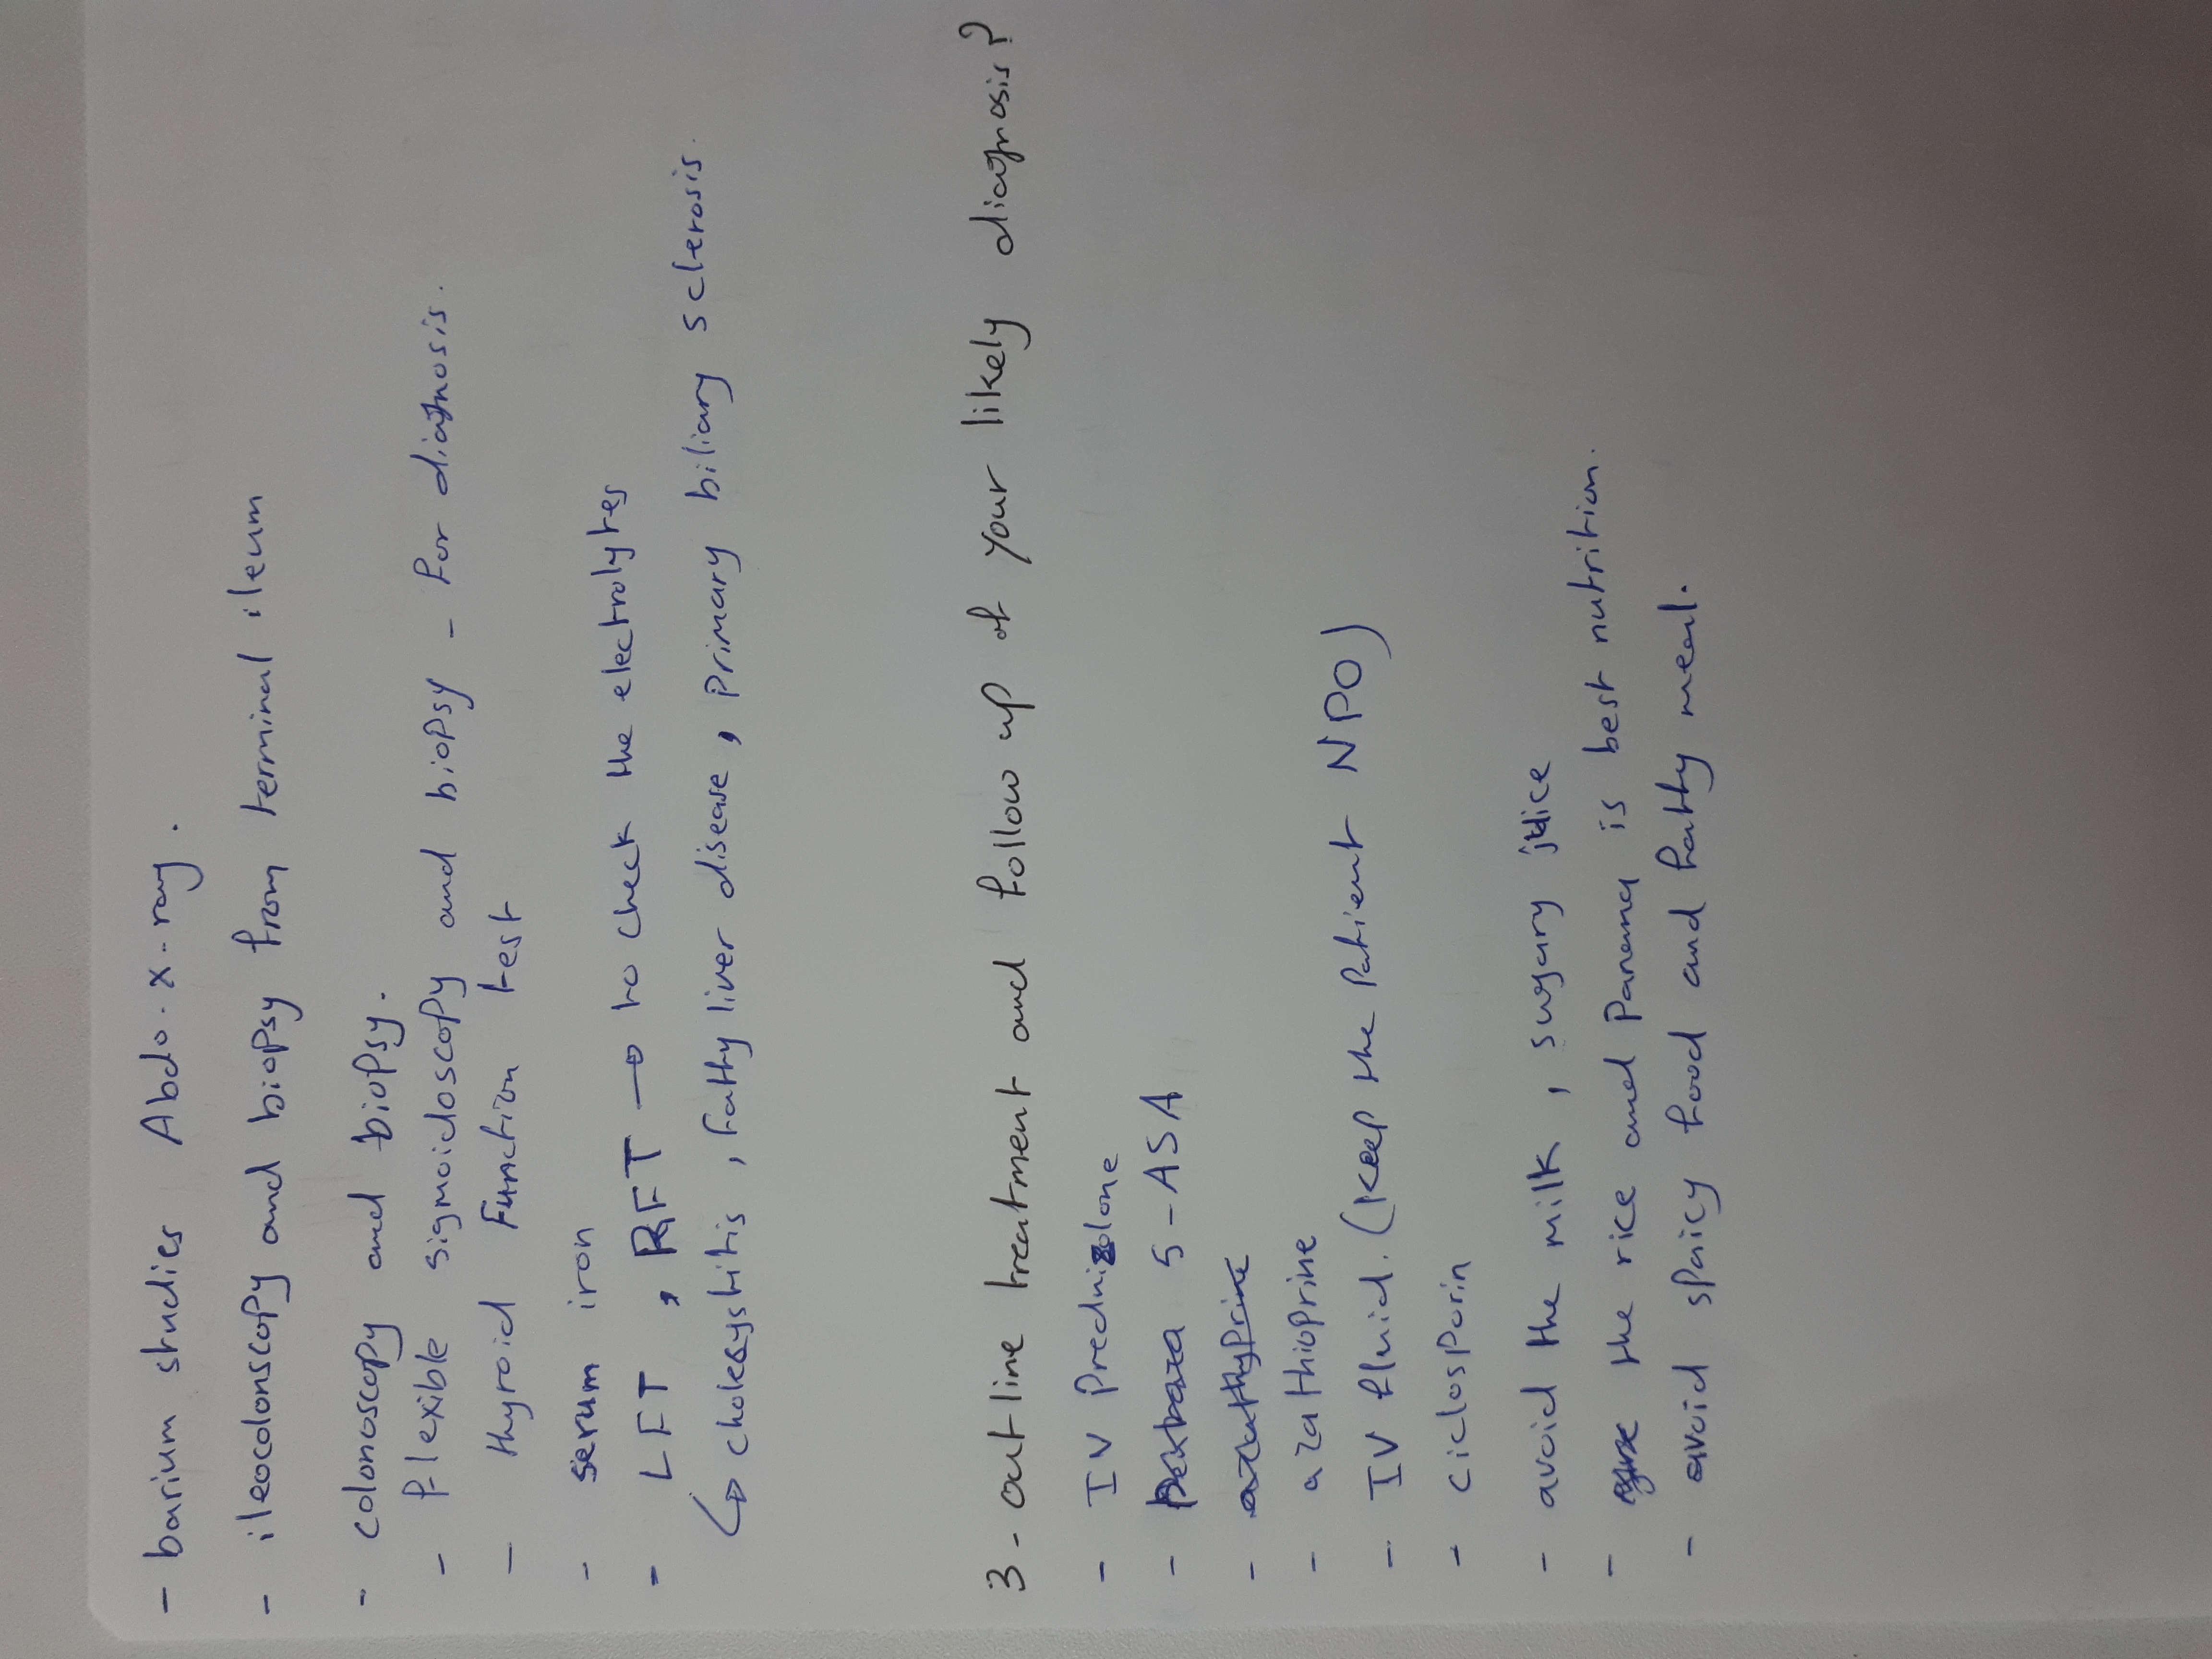 - barium studies Abdo. x-ray.
- ileocolonscopy and biopsy from terminal ileum
- colonoscopy and biopsy.
- flexible sigmoidoscopy and biopsy - for diagnosis.
- thyroid Function test
- serum iron
- LFT, RFT → to check the electrolytes
↳ cholecystitis, Fatty liver disease, primary biliary sclerosis.
3- outline treatment and follow up of your likely diagnosis?
- IV Prednizolone
- 5-ASA
- azathyprine
- azathioprine
- IV fluid. (keep the patient NPO)
- ciclosporin
- avoid the milk, sugary juice
- the rice and Panama is best nutrition.
- avoid spaicy food and fatty meal.